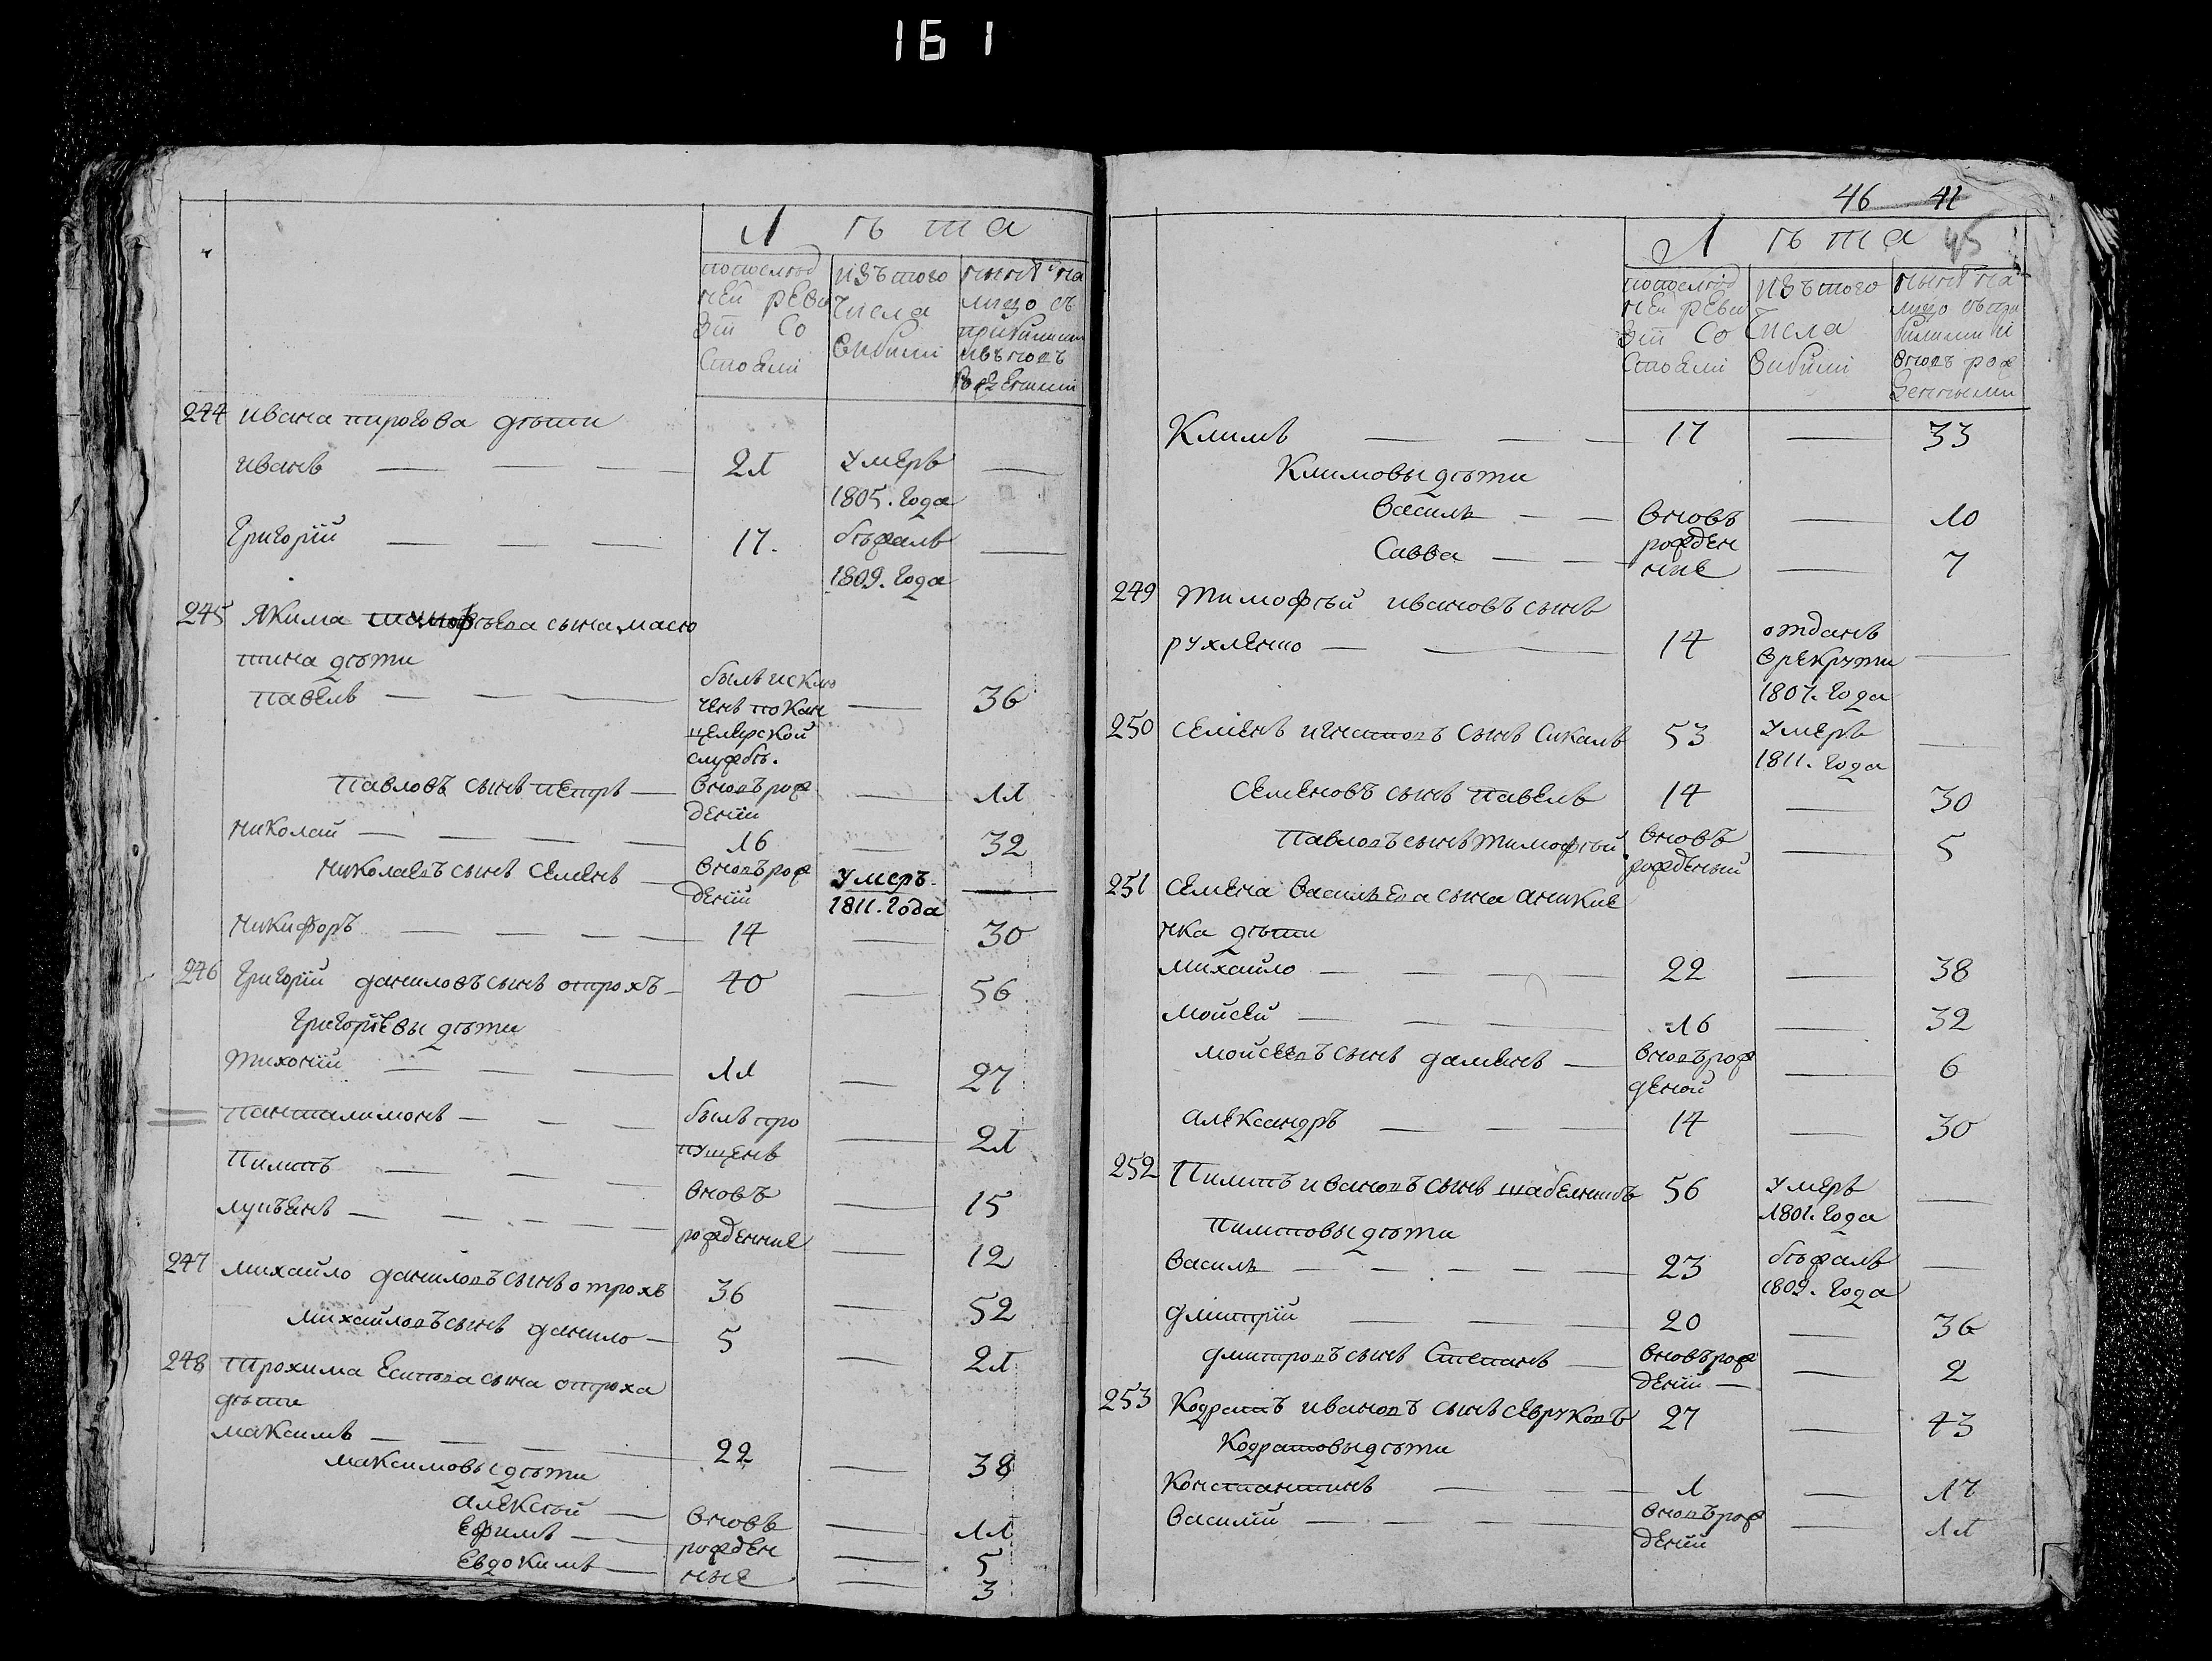 161
Лѣта
попослѣд
ней реви
зіи со
стояли
изътого
числа
выбыли
нынѣ на
лицо съ
прибылыми
ивъновь
рожденными
244 ивана пирогова дѣти
иванъ — — — 21 умеръ —
1805. года
григорій — — — 17. бѣжалъ —
1809. года
245 якима тимофѣева сына масю
тина дѣти
павелъ — — — былъ исклю — 36
ченъ по кан
целярской
службѣ.
павловъ сынъ петръ — вновърож — 11
деній
николай — — — — 16 — 32
николаевъ сынъ семенъ — вновърож умеръ. —
деній 1811. года
никифоръ — — — — 14 — 30
246 григорій даниловъ сынъ отрохъ — 40 — 56
григоріевы дѣти
тихоній — — — 11 — 27
панталимонъ — — — былъ про — 21
пущенъ
пилипъ — — — вновъ — 15
лупъянъ — — — — — рожденние — 12
247 михайло даниловъ сынъ отрохъ 36 — 52
михайловъ сынъ данило — 5 — 21
248 трохима есипова сына отроха
дѣти
максимъ — — — — 22 — 38
максимовы дѣти
алексѣй — вновъ — 11
ефимъ — рожден — 5
евдокимъ — ные — 3
46 41
45
Лѣта
попослѣд
ней реви
зіи со
стояли
изътого
числа
выбыли
нынѣ на
лицо съ при
былыми и
вновъ рож
денными
климъ — — — 17 — 33
климовы дѣти
василь — — вновъ — 10
савва — — рожден — 7
ные
249 тимофѣй ивановъ сынъ
рухленко — — 14 отданъ —
врекруты
1807. года
250 семенъ игнатовъ сынъ сикалъ 53 умеръ —
1811. года
семеновъ сынъ павелъ 14 — 30
павловъ сынъ тимофѣй вновъ — 5
рожденый
251 семена васильева сына аникие
нка дѣти
михайло — — — 22 — 38
мойсей — — — 16 — 32
мойсеевъ сынъ даменъ — вновърож — 6
деной
александръ — — — 14 — 30
252 пилипъ ивановъ сынъ 56 умеръ —
1801. года
пилиповы дѣти
василь — — — — — 23 бѣжалъ —
1809. года
дмитрій — — — 20 — 36
дмитровъ сынъ степанъ — вновърож — 2
деній —
253 кодратъ ивановъ сынъ севруковъ 27 — 43
кодратовы дѣти
константинъ — — — 1 — 17
василій — — — — вновърож — 11
деній